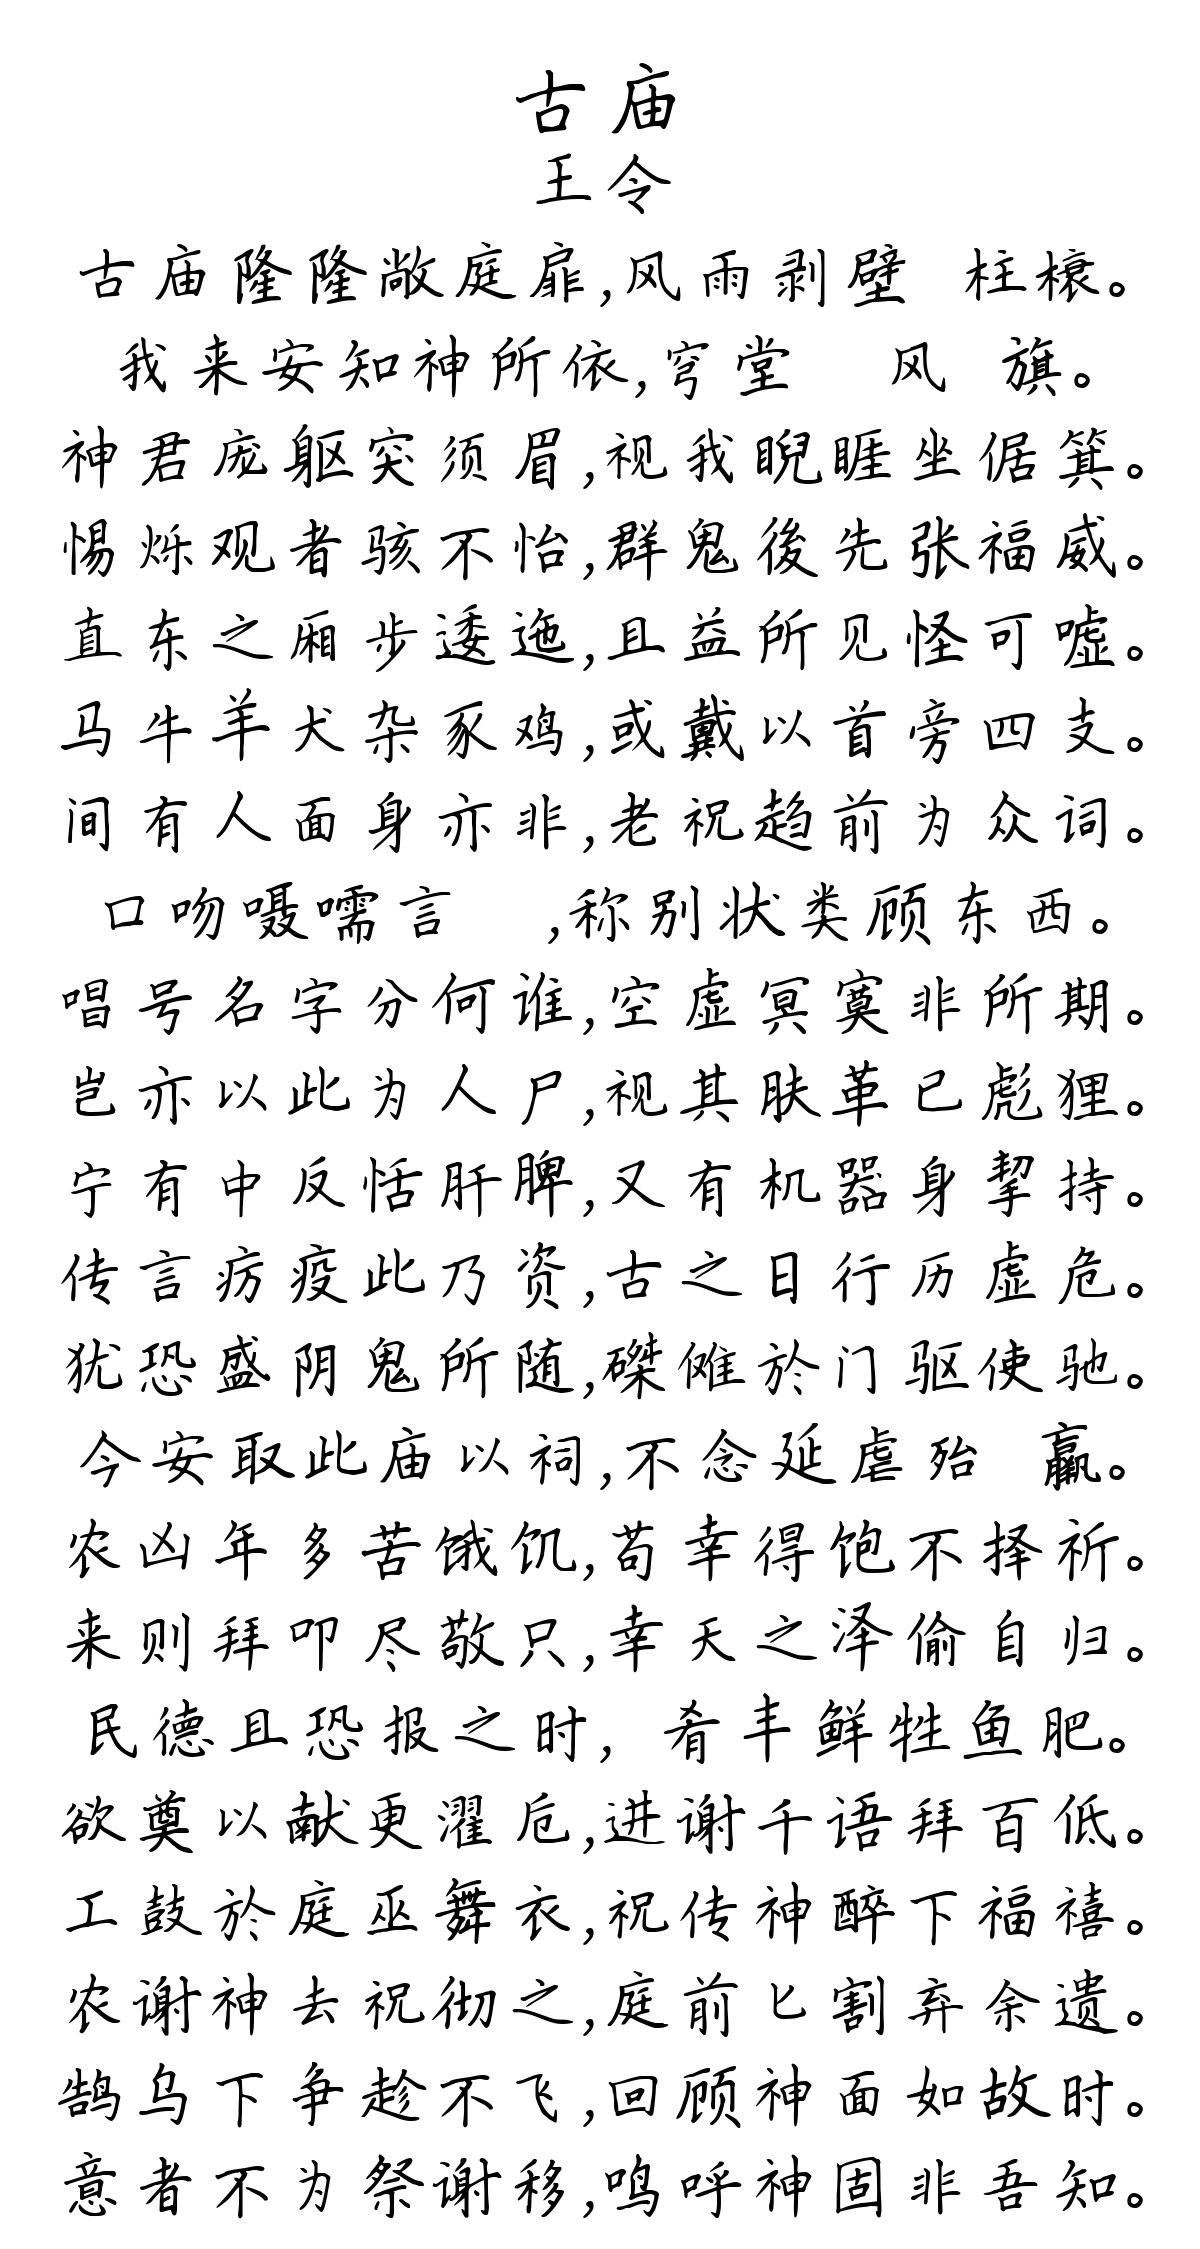 古庙
王令
古庙隆隆敞庭扉,风雨剥壁 柱榱。
我来安知神所依,穹堂 风 旗。
神君庞躯突须眉,视我睨睚坐倨箕。
惕烁观者骇不怡,群鬼後先张福威。
直东之厢步逶迤,且益所见怪可嘘。
马牛羊犬杂豕鸡,或戴以首旁四支。
间有人面身亦非,老祝趋前为众词。
口吻嗫嚅言 ,称别状类顾东西。
唱号名字分何谁,空虚冥寞非所期。
岂亦以此为人尸,视其肤革已彪狸。
宁有中反恬肝脾,又有机器身挈持。
传言疠疫此乃资,古之日行历虚危。
犹恐盛阴鬼所随,磔傩於门驱使驰。
今安取此庙以祠,不念延虐殆 羸。
农凶年多苦饿饥,苟幸得饱不择祈。
来则拜叩尽敬只,幸天之泽偷自归。
民德且恐报之时, 肴丰鲜牲鱼肥。
欲奠以献更濯卮,进谢千语拜百低。
工鼓於庭巫舞衣,祝传神醉下福禧。
农谢神去祝彻之,庭前匕割弃余遗。
鹄乌下争趁不飞,回顾神面如故时。
意者不为祭谢移,鸣呼神固非吾知。